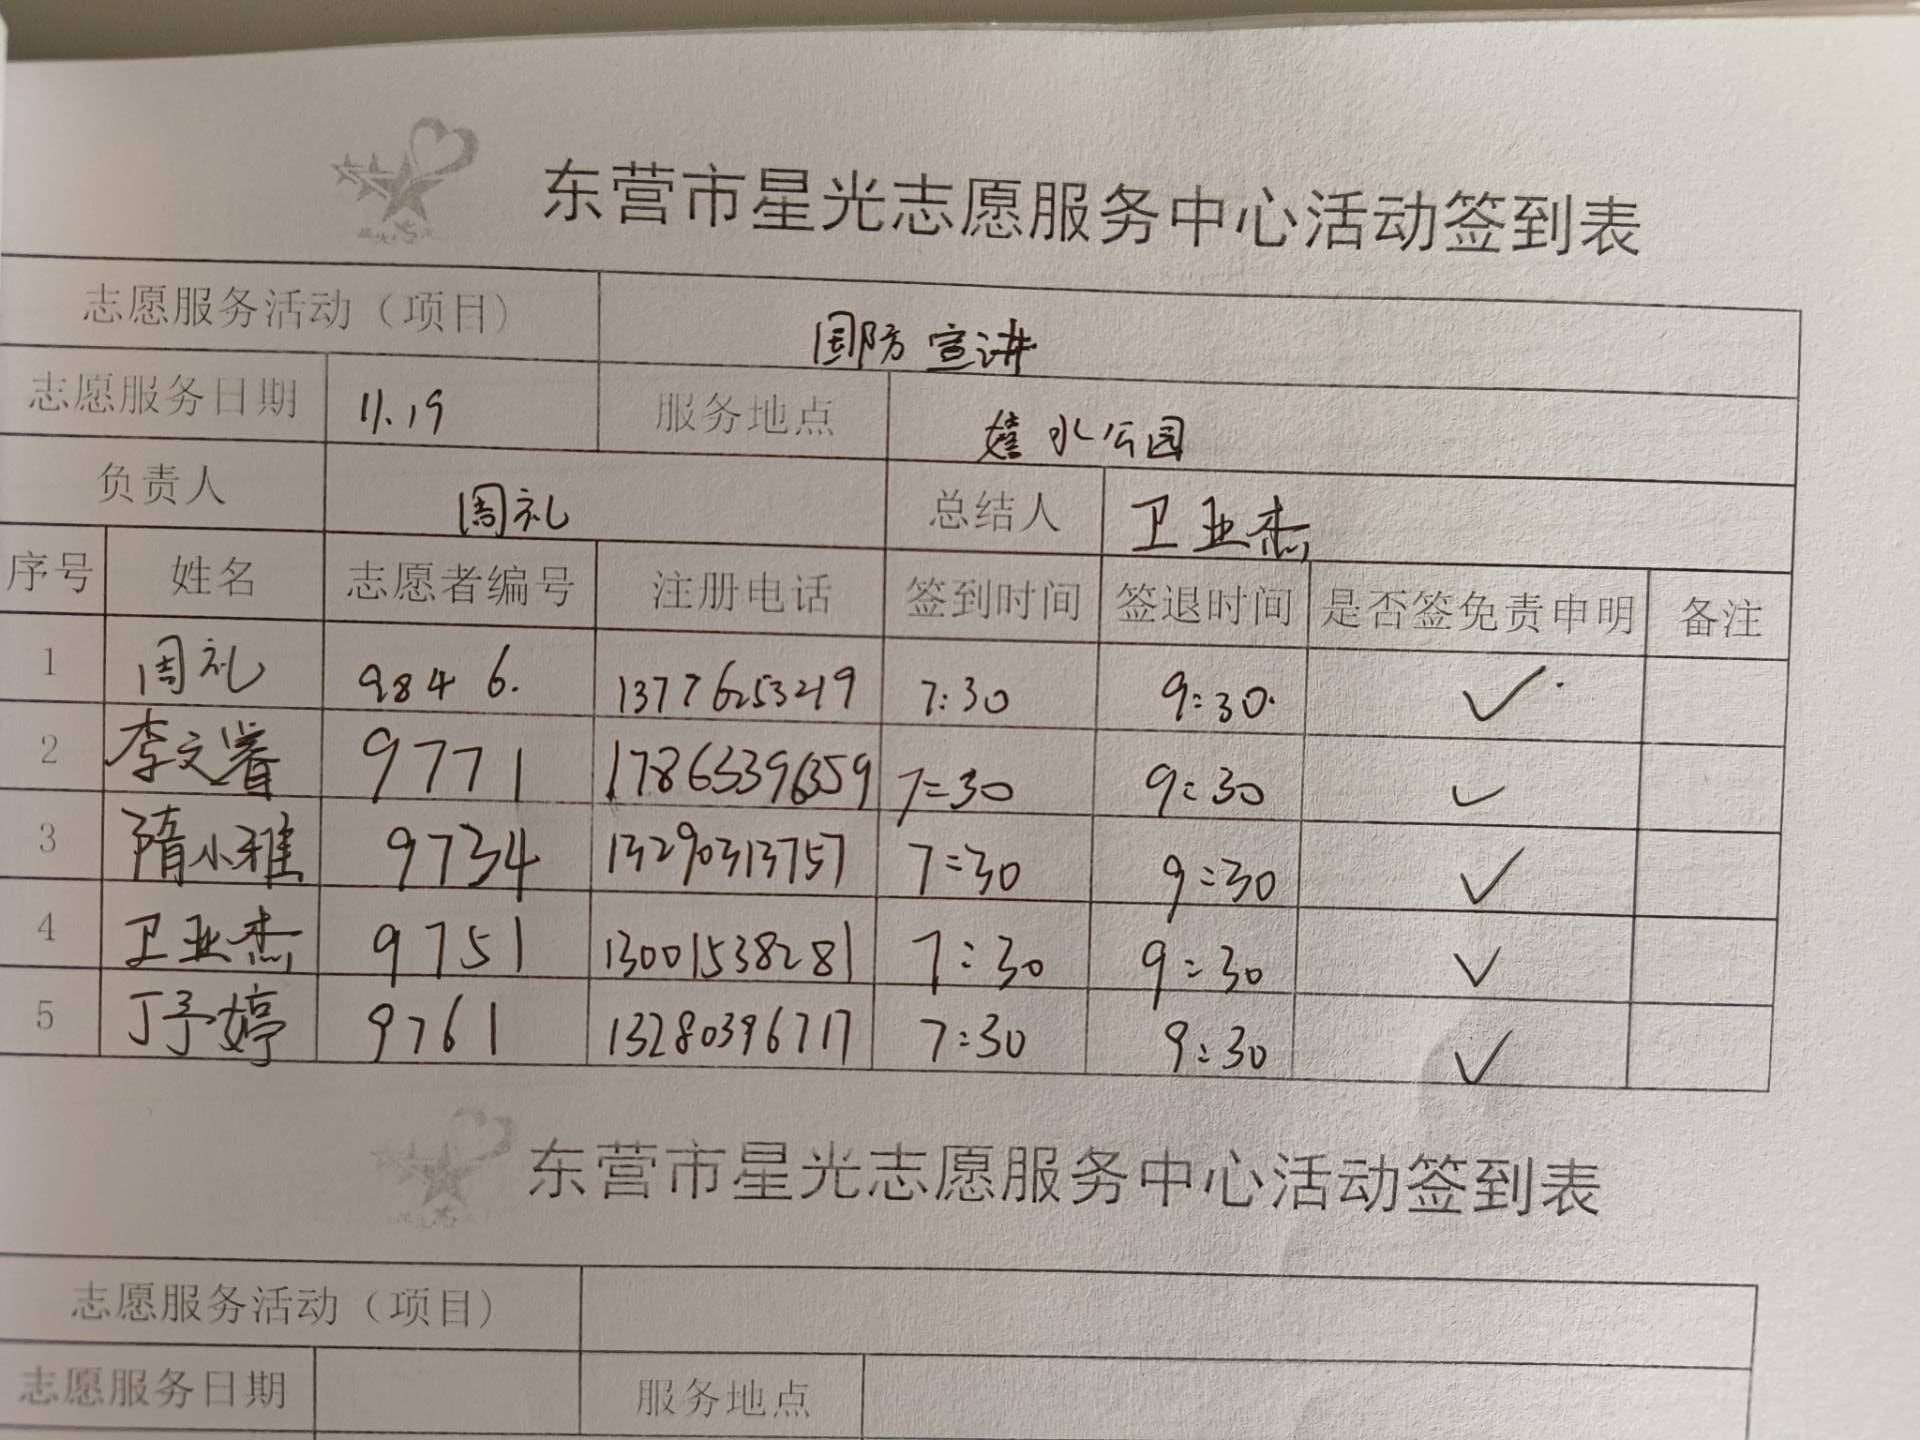 东营市星光志愿服务中心活动签到表
志愿服务活动（项目） 国防宣讲
志愿服务日期 11.19 服务地点 嬉水公园
负责人 周礼 总结人 卫亚杰
序号 姓名 志愿者编号 注册电话 签到时间 签退时间 是否签免责申明 备注
1 周礼 9846. 13776253219 7:30 9:30. ✓
2 李文睿 9771 17863396359 7:30 9:30 ✓
3 隋小雅 9734 13290313757 7:30 9:30 ✓
4 卫亚杰 9751 13001538281 7:30 9:30 ✓
5 丁予婷 9761 13280396717 7:30 9:30 ✓
东营市星光志愿服务中心活动签到表
志愿服务活动（项目）
志愿服务日期 服务地点